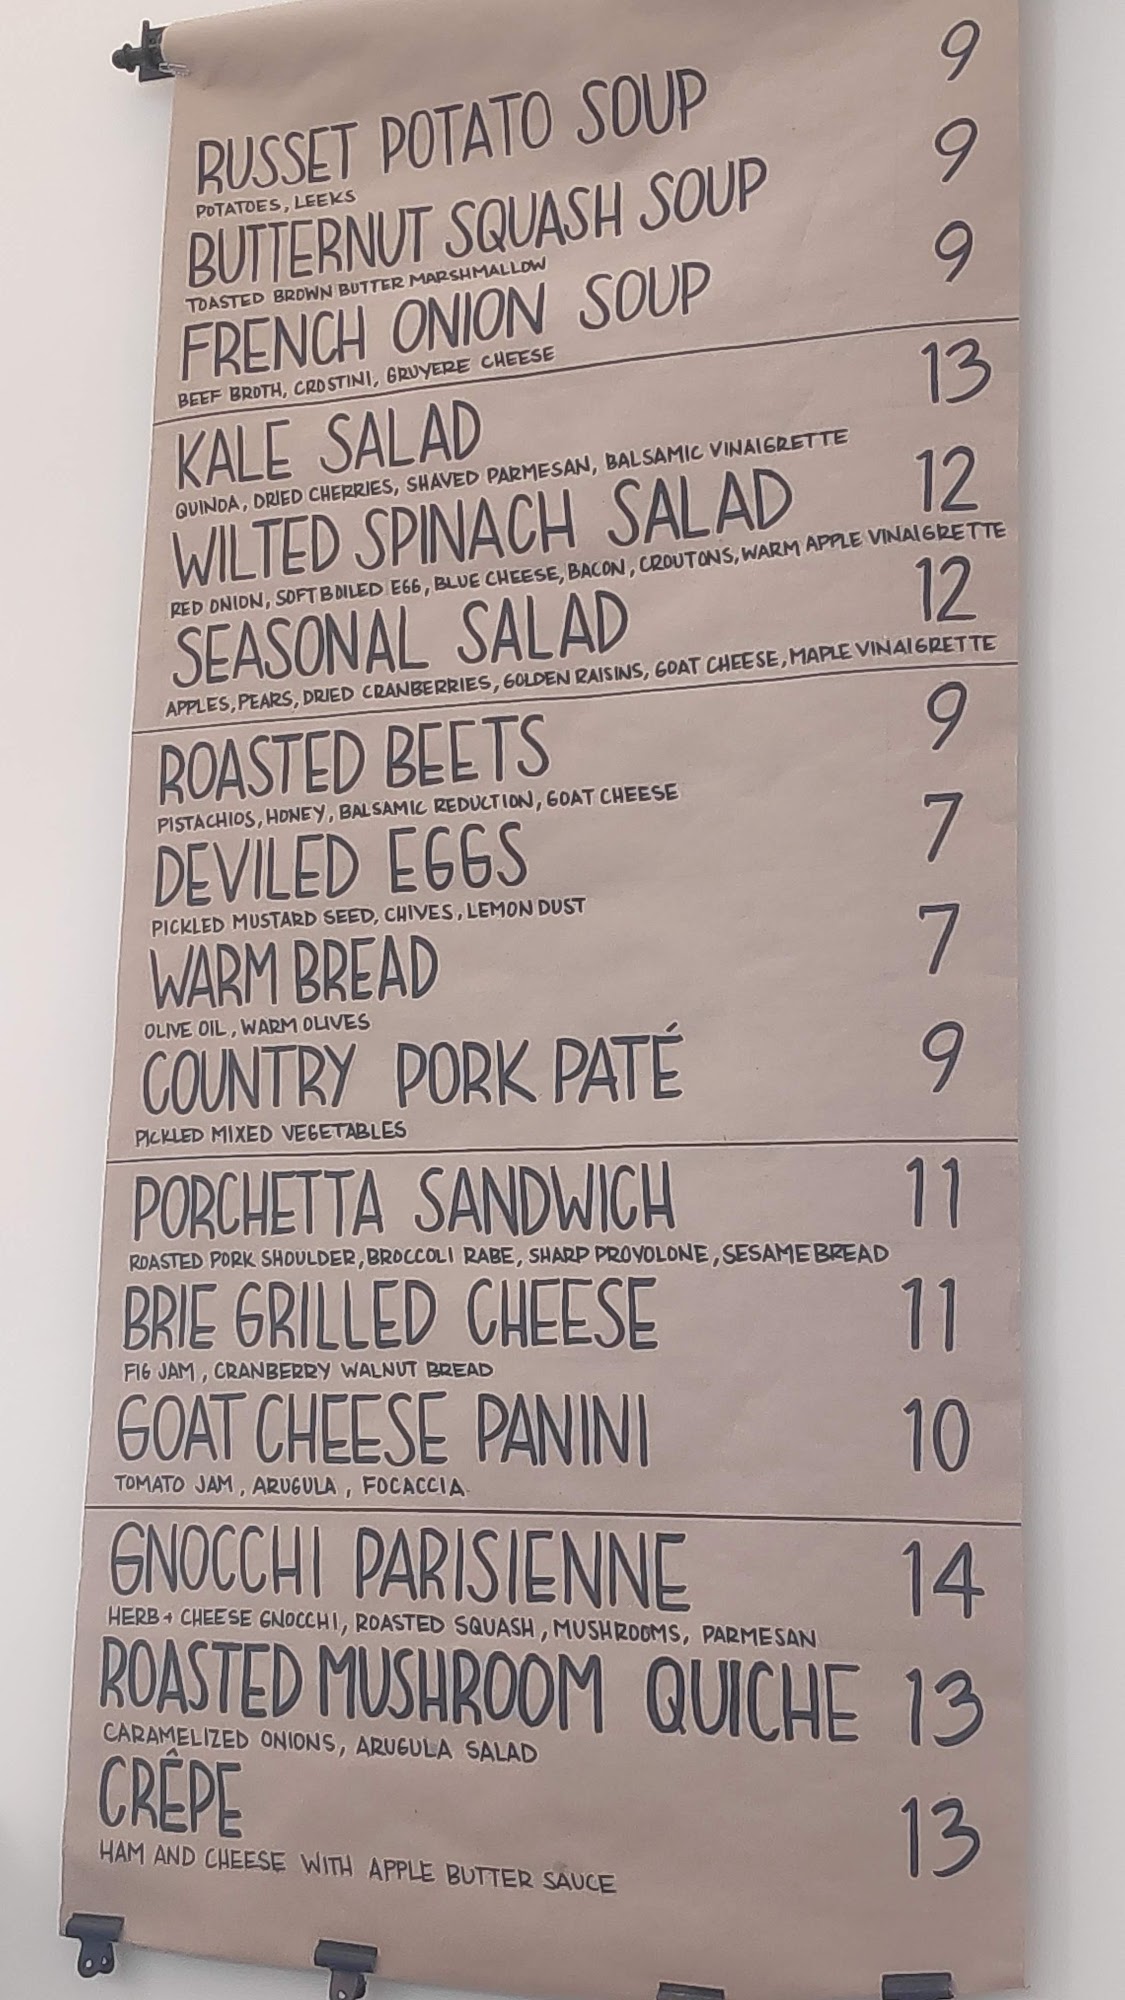 RUSSET POTATO SOUP 9
POTATOES, LEEKS
BUTTERNUT SQUASH SOUP 9
TOASTED BROWN BUTTER MARSHMALLOW
FRENCH ONION SOUP 9
BEEF BROTH, CROSTINI, GRUYERE CHEESE
KALE SALAD 13
QUINOA, DRIED CHERRIES, SHAVED PARMESAN, BALSAMIC VINAIGRETTE
WILTED SPINACH SALAD 12
RED ONION, SOFT BOILED EGG, BLUE CHEESE, BACON, CROUTONS, WARM APPLE VINAIGRETTE
SEASONAL SALAD 12
APPLES, PEARS, DRIED CRANBERRIES, GOLDEN RAISINS, GOAT CHEESE, MAPLE VINAIGRETTE
ROASTED BEETS 9
PISTACHIOS, HONEY, BALSAMIC REDUCTION, GOAT CHEESE
DEVILED EGGS 7
PICKLED MUSTARD SEED, CHIVES, LEMON DUST
WARM BREAD 7
OLIVE OIL, WARM OLIVES
COUNTRY PORK PATÉ 9
PICKLED MIXED VEGETABLES
PORCHETTA SANDWICH 11
ROASTED PORK SHOULDER, BROCCOLI RABE, SHARP PROVOLONE, SESAME BREAD
BRIE GRILLED CHEESE 11
FIG JAM, CRANBERRY WALNUT BREAD
GOAT CHEESE PANINI 10
TOMATO JAM, ARUGULA, FOCACCIA
GNOCCHI PARISIENNE 14
HERB + CHEESE GNOCCHI, ROASTED SQUASH, MUSHROOMS, PARMESAN
ROASTED MUSHROOM QUICHE 13
CARAMELIZED ONIONS, ARUGULA SALAD
CRÊPE 13
HAM AND CHEESE WITH APPLE BUTTER SAUCE